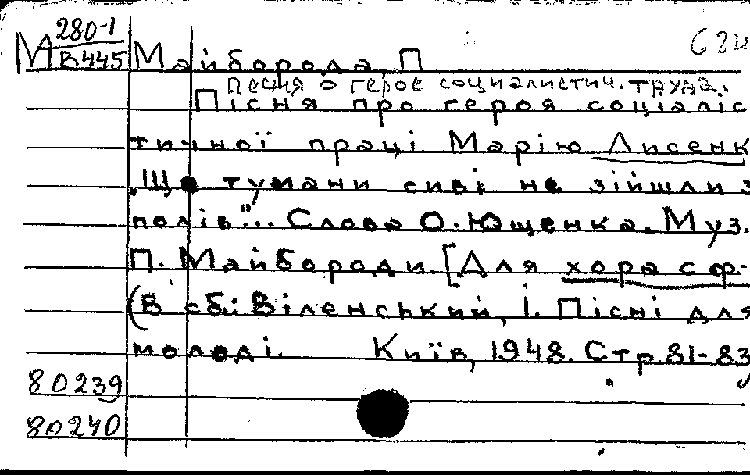 280-1
М В445 Майборода, П
Песня о герое социалистич. труда.
Пісня про героя соціаліс
тичної праці Марію Лисенк
„Ще тумани сиві не зійшли з
полів"... Слова О. Ющенка. Муз.
П. Майбороди. [Для хора с ф-
(В сб.: Віленський, І. Пісні для
молоді. Київ, 1948. Стр. 81-83
80239
80240